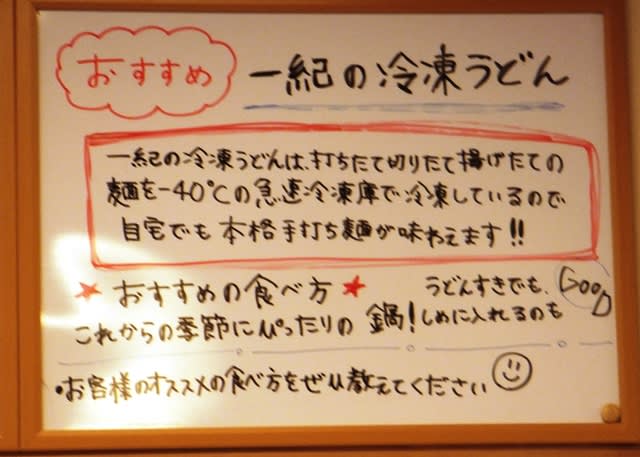 おすすめ 一紀の冷凍うどん
一紀の冷凍うどんは、打ちたて切りたて揚げたての
麺を-40℃の急速冷凍庫で冷凍しているので
自宅でも本格手打ち麺が味わえます!!
★おすすめの食べ方★
これからの季節にぴったりの鍋!
うどんすきでも、
しめに入れるのも
Good
・お客様のオススメの食べ方をぜひ教えてください